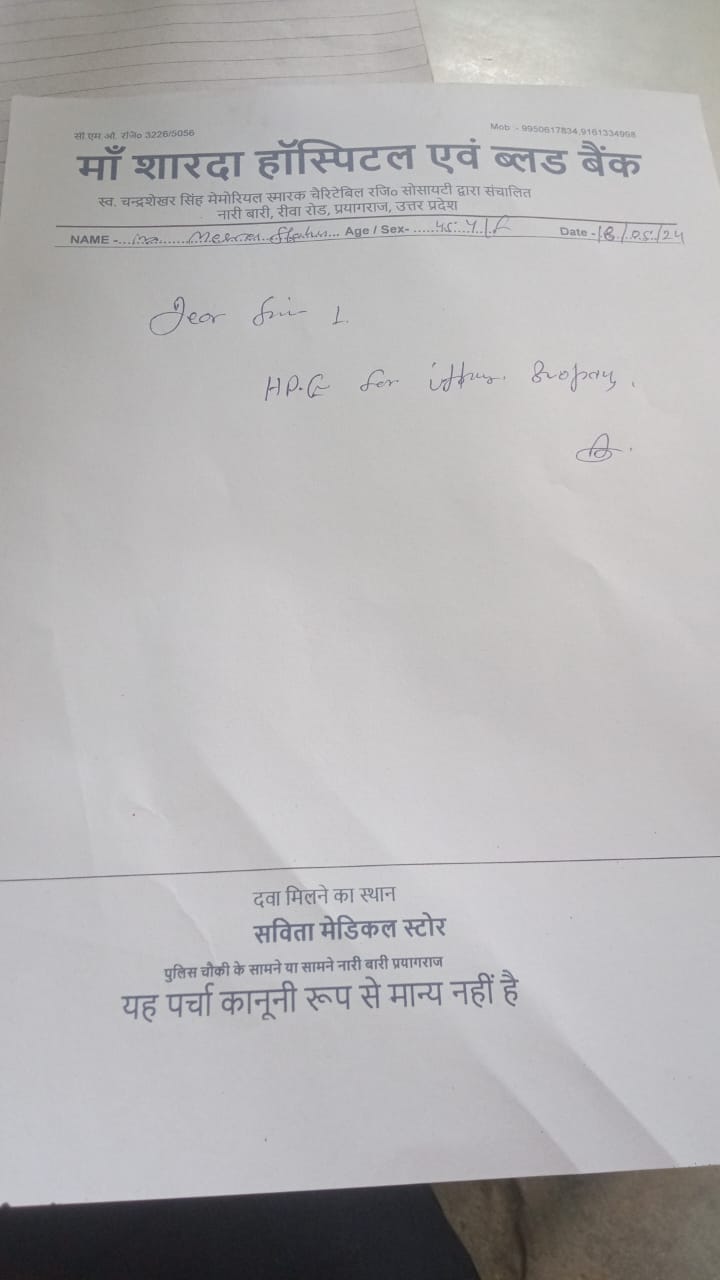 सी.एम.ओ. रजि० 3226/5056
Mob :- 9950617834,9161334998
माँ शारदा हॉस्पिटल एवं ब्लड बैंक
स्व. चन्द्रशेखर सिंह मेमोरियल स्मारक चेरिटेबिल रजि० सोसायटी द्वारा संचालित
नारी बारी, रीवा रोड, प्रयागराज, उत्तर प्रदेश
NAME - Age / Sex- 45 Y / F Date - 18/05/24
Dear Sir
HP.E for
दवा मिलने का स्थान
सविता मेडिकल स्टोर
पुलिस चौकी के सामने या सामने नारी बारी प्रयागराज
यह पर्चा कानूनी रूप से मान्य नहीं है